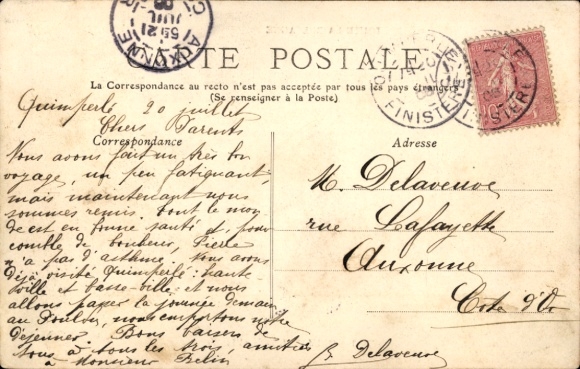 CARTE POSTALE
La Correspondance au recto n'est pas acceptée par tous les pays étrangers
(Se renseigner à la Poste)
Correspondance
Adresse
AUXONNE
21
JUIL
QUIMPERLÉ
FINISTÈRE
FINISTÈRE
Quimperlé 20 juillet
Chers Parents
Nous avons fait un très bon
voyage, un peu fatiguant,
mais maintenant nous
sommes remis. Tout le mon-
de est en bonne santé et, pour
comble de bonheur, Pierre
n'a pas d'asthme. Nous avons
Déjà visité Quimperlé: haute
ville et basse-ville et nous
allons passer la journée demain
au Pouldu, nous emportons notre
Déjeuner. Bons baisers de
tous à tous les trois, amitiés
à Monsieur Belin
P. Delaveuve
M. Delaveuve
rue Lafayette
Auxonne
Cote d'Or